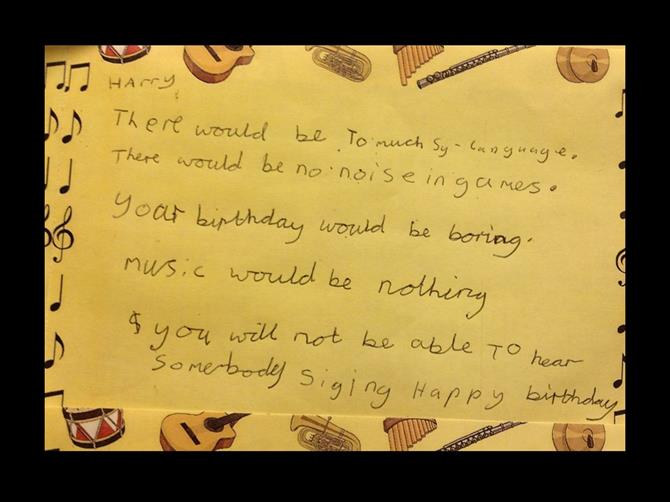 HArry
There would be To much Sy-language.
There would be no noise in games.
your birthday would be boring.
music would be nothing
$ you will not be able To hear
Somebody Siging Happy birthday